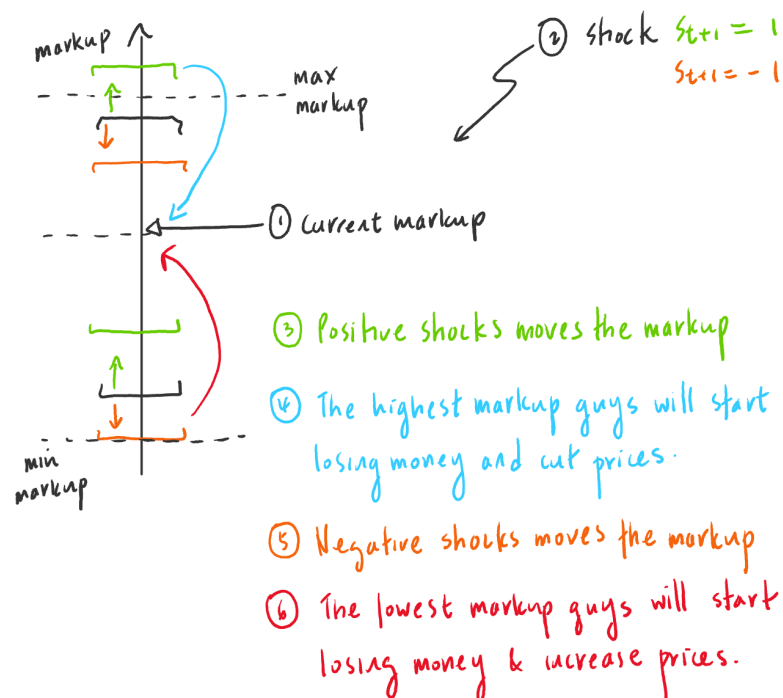 markup
max
markup
② shock St+1 = 1
St+1 = -1
① Current markup
③ Positive shocks moves the markup
④ The highest markup guys will start
losing money and cut prices.
min
markup
⑤ Negative shocks moves the markup
⑥ The lowest markup guys will start
losing money & increase prices.